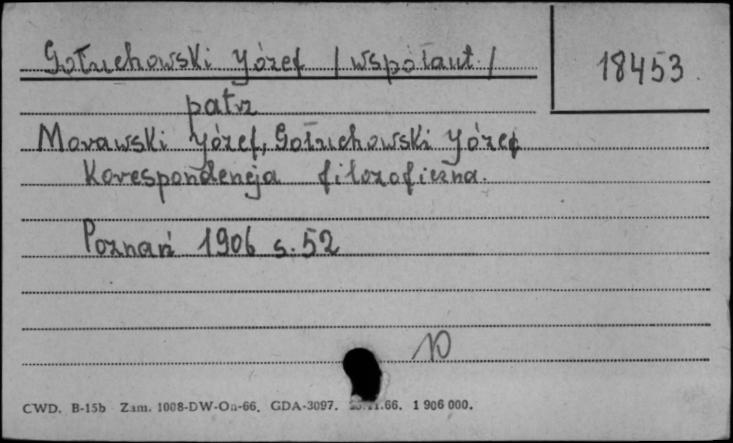 Gołuchowski Józef /współaut/
18453
patrz
Morawski Józef, Gołuchowski Józef
Korespondencja filozoficzna.
Poznań 1906 s. 52
CWD. B-15b Zam. 1008-DW-On-66. GDA-3097. 1 906 000.